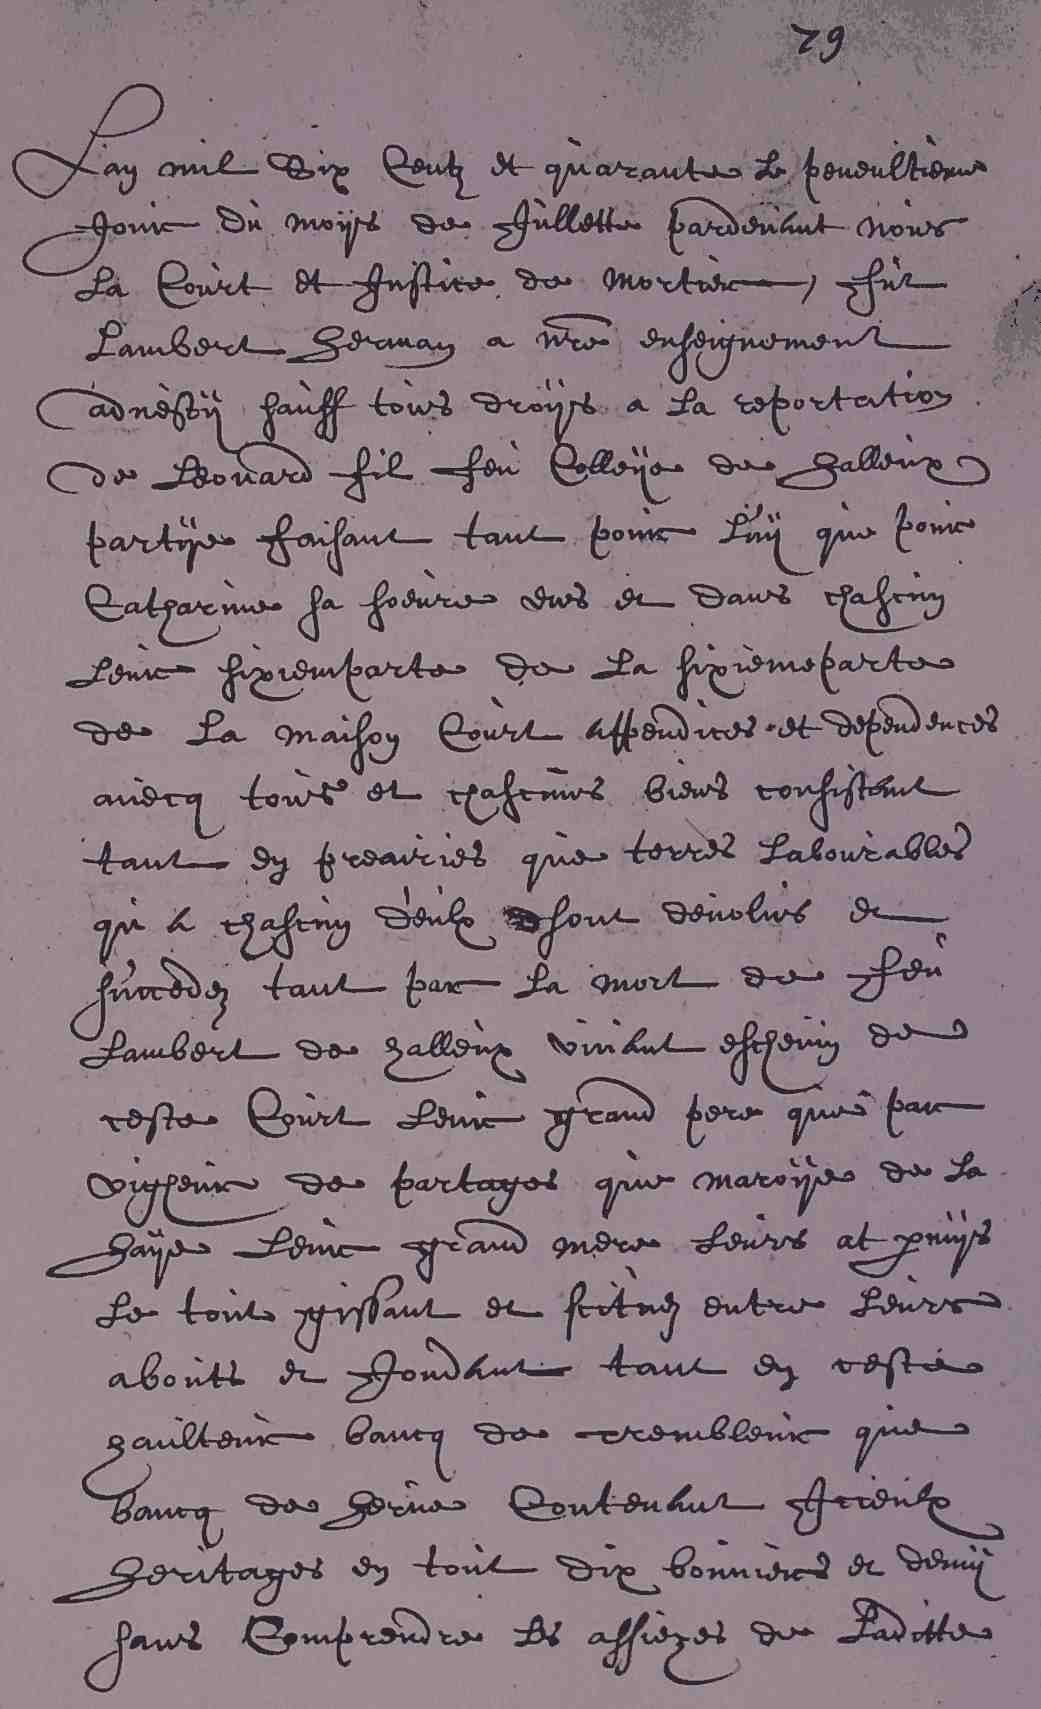 79
L'an mil Six Centz et quarante le peneultieme
Jour du moijs de Jullette pardevant nous
La Court et Justice de Mortier, fut
Lambert Herman a nre enseignement
advesty sauff tous droijs a la reportation
de Leonard fil feu Colleye de Halleux
partije faisant tant pour luij que pour
Catharine sa soeure ens et dans chascun
leur sixiemparte de la sixiemeparte
de la maison Court appendices et dependences
avecq tous et chascuns biens consistant
tant en preairies que terres labourables
qu a chascun d'eulx sont devolus et
succedez tant par la mort de feu
Lambert de halleux vivant eschevin de
ceste Court leur grand pere que par
vigheur de partages que maroije de la
Haije leur grand mere leurs at
le tout gissant et scituez entre leurs
abouts et Jondant tant en ceste
haulteur bancq de trembleur que
bancq de Herve Contenant Jceulx
Heritages en tout dix bonniers et demij
sans Comprendre les assiezes de Laditte